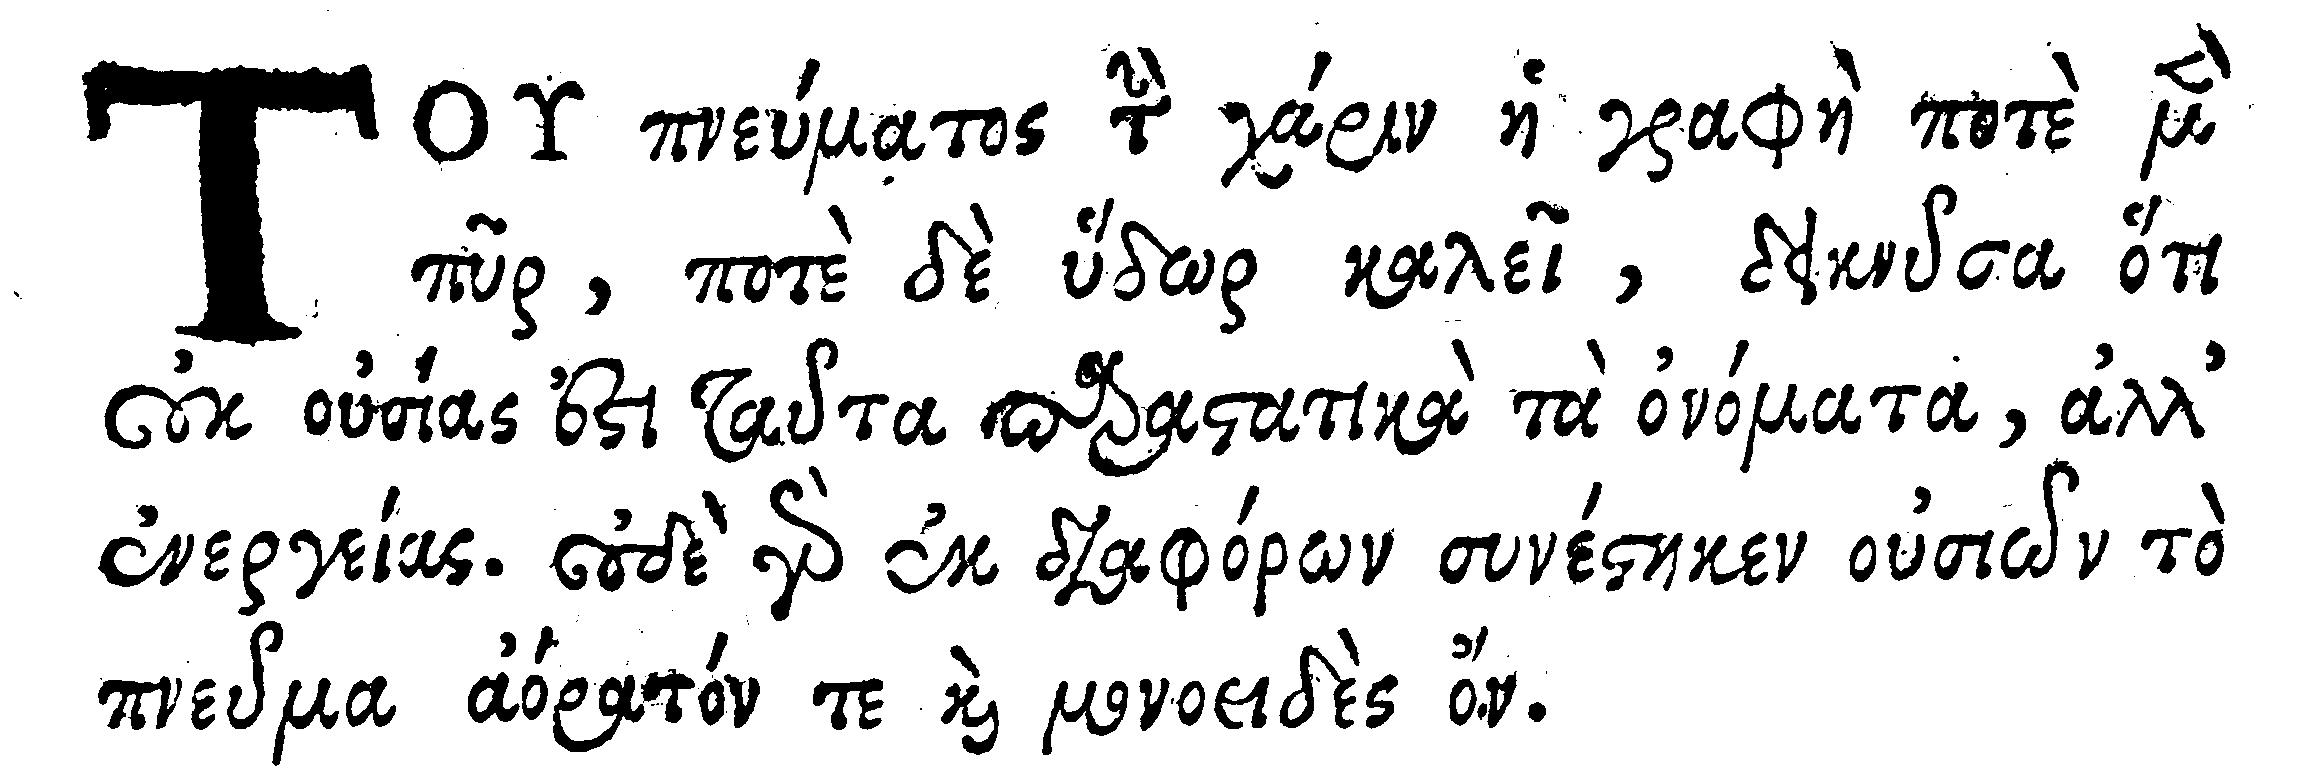 ΤΟΥ πνεύματος τὴν χάριν ἡ γραφὴ ποτὲ μὲν
πῦρ, ποτὲ δὲ ὕδωρ καλεῖ, δεικνῦσα ὅτι
οὐκ οὐσίας ἐστὶ ταῦτα παραστατικὰ τὰ ὀνόματα, ἀλλ’
ἐνεργείας. οὐδὲ γὰρ ἐκ διαφόρων συνέστηκεν οὐσιῶν τὸ
πνεῦμα ἀόρατόν τε καὶ μονοειδὲς ὄν.